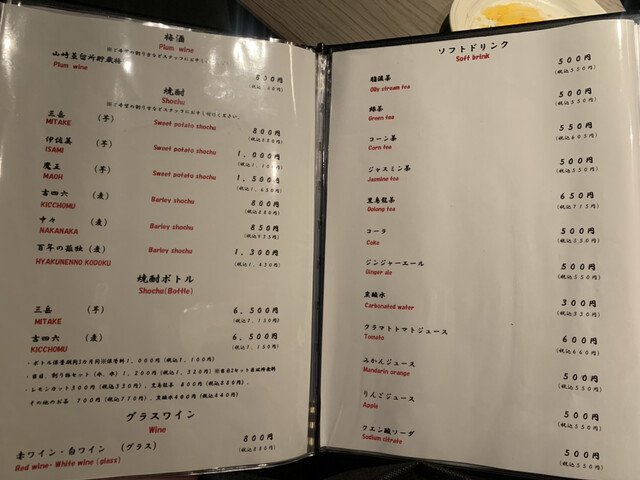 梅酒
Plum wine
山崎蒸留所貯蔵梅
Plum wine
800円
焼酎
Shochu
三岳 (芋)
MITAKE Sweet potato shochu
800円
(税込880円)
伊佐美 (芋)
ISAMI Sweet potato shochu
1,000円
(税込1,100円)
魔王 (芋)
MAOH Sweet potato shochu
1,500円
(税込1,650円)
吉四六 (麦)
KICCHOMU Barley shochu
800円
(税込880円)
中々 (麦)
NAKANAKA Barley shochu
850円
(税込935円)
百年の孤独 (麦)
HYAKUNENNO KODOKU Barley shochu
1,300円
(税込1,430円)
焼酎ボトル
Shochu(Bottle)
三岳 (芋)
MITAKE
6,500円
(税込7,150円)
吉四六 (麦)
KICCHOMU
6,500円
(税込7,150円)
・ボトル保管期間3か月間※保管料1,000円(税込1,100円)
1,200円(税込1,320円)
・レモンカット300円(税込330円)、黒烏龍茶 800円(税込880円)、
その他のお茶 700円(税込770円)、炭酸水400円(税込440円)
グラスワイン
Wine
赤ワイン・白ワイン (グラス)
Red wine・White wine (glass)
800円
(税込880円)
ソフトドリンク
Soft brink
脂流茶
Oily stream tea
500円
(税込550円)
緑茶
Green tea
500円
(税込550円)
コーン茶
Corn tea
550円
(税込605円)
ジャスミン茶
Jasmine tea
500円
(税込550円)
黒烏龍茶
Oolong tea
650円
(税込715円)
コーラ
Coke
500円
(税込550円)
ジンジャーエール
Ginger ale
500円
(税込550円)
炭酸水
Carbonated water
300円
(税込330円)
クラマトトマトジュース
Tomato
600円
(税込660円)
みかんジュース
Mandarin orange
500円
(税込550円)
りんごジュース
Apple
500円
(税込550円)
クエン酸ソーダ
Sodium citrate
500円
(税込550円)